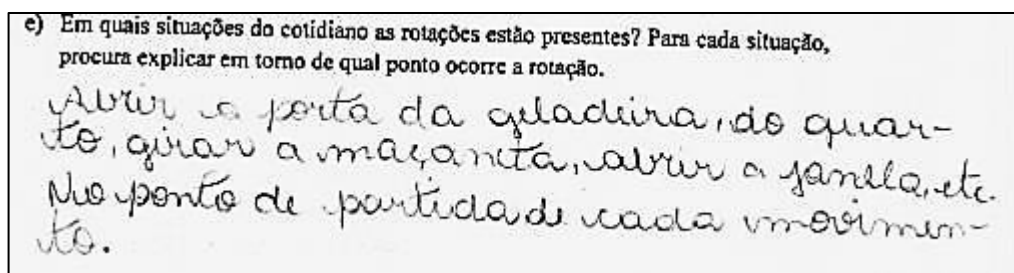 e) Em quais situações do cotidiano as rotações estão presentes? Para cada situação,
procura explicar em torno de qual ponto ocorre a rotação.
Abrir a porta da geladeira, do quar-
to, girar a maçaneta, abrir a janela, etc.
No ponto de partida de cada movimen-
to.